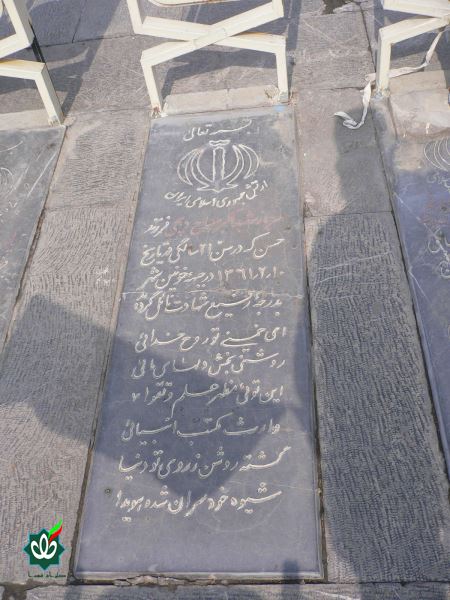 بسمه تعالی
ارتش جمهوری اسلامی ایران
فرزند
حسن که در سن ۲۱ سالگی در تاریخ
۱۳۶۱.۲.۱۰ در جبهه خونین شهر
بدرجه رفیع شهادت نائل گرد
ای خمینی تو روح خدائی
روشنی بخش دلهای مائی
این توئی مظهر علم و تقوا
وارث مکتب انبیائی
گشته روشن ز روی تو دنیا
شیوه خودسران شده هویدا